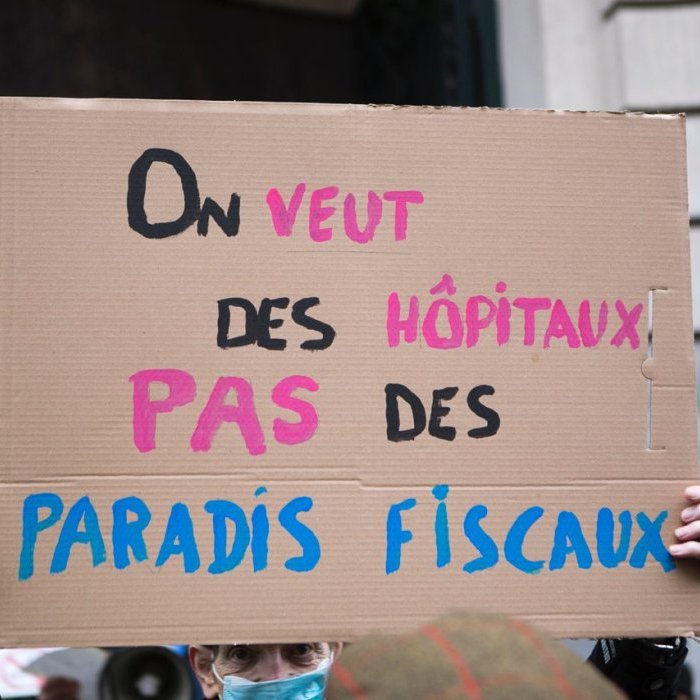 ON VEUT
DES HÔPITAUX
PAS DES
PARADIS FISCAUX